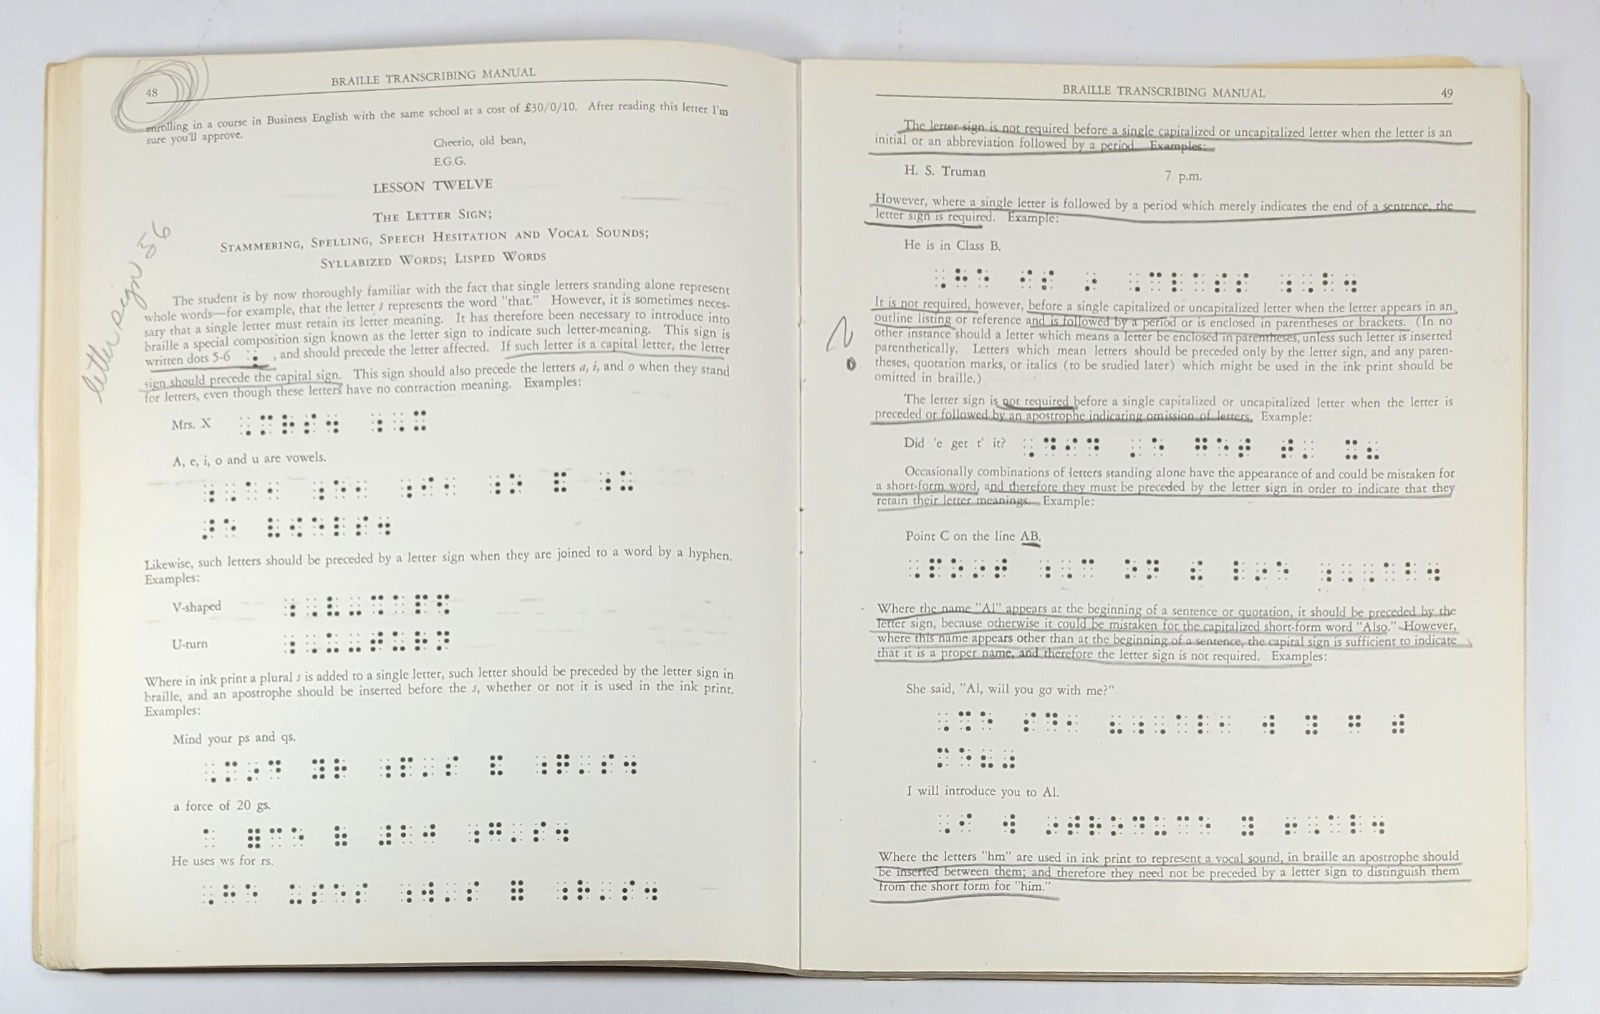 48
BRAILLE TRANSCRIBING MANUAL
enrolling in a course in Business English with the same school at a cost of £30/0/10. After reading this letter I'm
sure you'll approve.
Cheerio, old bean,
E.G.G.
LESSON TWELVE
THE LETTER SIGN;
STAMMERING, SPELLING, SPEECH HESITATION AND VOCAL SOUNDS;
SYLLABIZED WORDS; LISPED WORDS
letter sign 56
The student is by now thoroughly familiar with the fact that single letters standing alone represent
whole words—for example, that the letter t represents the word "that." However, it is sometimes neces-
sary that a single letter must retain its letter meaning. It has therefore been necessary to introduce into
braille a special composition sign known as the letter sign to indicate such letter-meaning. This sign is
written dots 5-6 ⠰, and should precede the letter affected. If such letter is a capital letter, the letter
sign should precede the capital sign. This sign should also precede the letters a, i, and o when they stand
for letters, even though these letters have no contraction meaning. Examples:
Mrs. X
A, e, i, o and u are vowels.
Likewise, such letters should be preceded by a letter sign when they are joined to a word by a hyphen.
Examples:
V-shaped
U-turn
Where in ink print a plural s is added to a single letter, such letter should be preceded by the letter sign in
braille, and an apostrophe should be inserted before the s, whether or not it is used in the ink print.
Examples:
Mind your ps and qs.
a force of 20 gs.
He uses ws for rs.
BRAILLE TRANSCRIBING MANUAL
49
The letter sign is not required before a single capitalized or uncapitalized letter when the letter is an
initial or an abbreviation followed by a period. Examples:
H. S. Truman 7 p.m.
However, where a single letter is followed by a period which merely indicates the end of a sentence, the
letter sign is required. Example:
He is in Class B.
It is not required, however, before a single capitalized or uncapitalized letter when the letter appears in an
outline listing or reference and is followed by a period or is enclosed in parentheses or brackets. (In no
other instance should a letter which means a letter be enclosed in parentheses, unless such letter is inserted
parenthetically. Letters which mean letters should be preceded only by the letter sign, and any paren-
theses, quotation marks, or italics (to be studied later) which might be used in the ink print should be
omitted in braille.)
The letter sign is not required before a single capitalized or uncapitalized letter when the letter is
preceded or followed by an apostrophe indicating omission of letters. Example:
Did 'e get t' it?
Occasionally combinations of letters standing alone have the appearance of and could be mistaken for
a short-form word, and therefore they must be preceded by the letter sign in order to indicate that they
retain their letter meanings. Example:
Point C on the line AB.
Where the name "Al" appears at the beginning of a sentence or quotation, it should be preceded by the
letter sign, because otherwise it could be mistaken for the capitalized short-form word "Also." However,
where this name appears other than at the beginning of a sentence, the capital sign is sufficient to indicate
that it is a proper name, and therefore the letter sign is not required. Examples:
She said, "Al, will you go with me?"
I will introduce you to Al.
Where the letters "hm" are used in ink print to represent a vocal sound, in braille an apostrophe should
be inserted between them; and therefore they need not be preceded by a letter sign to distinguish them
from the short form for "him."